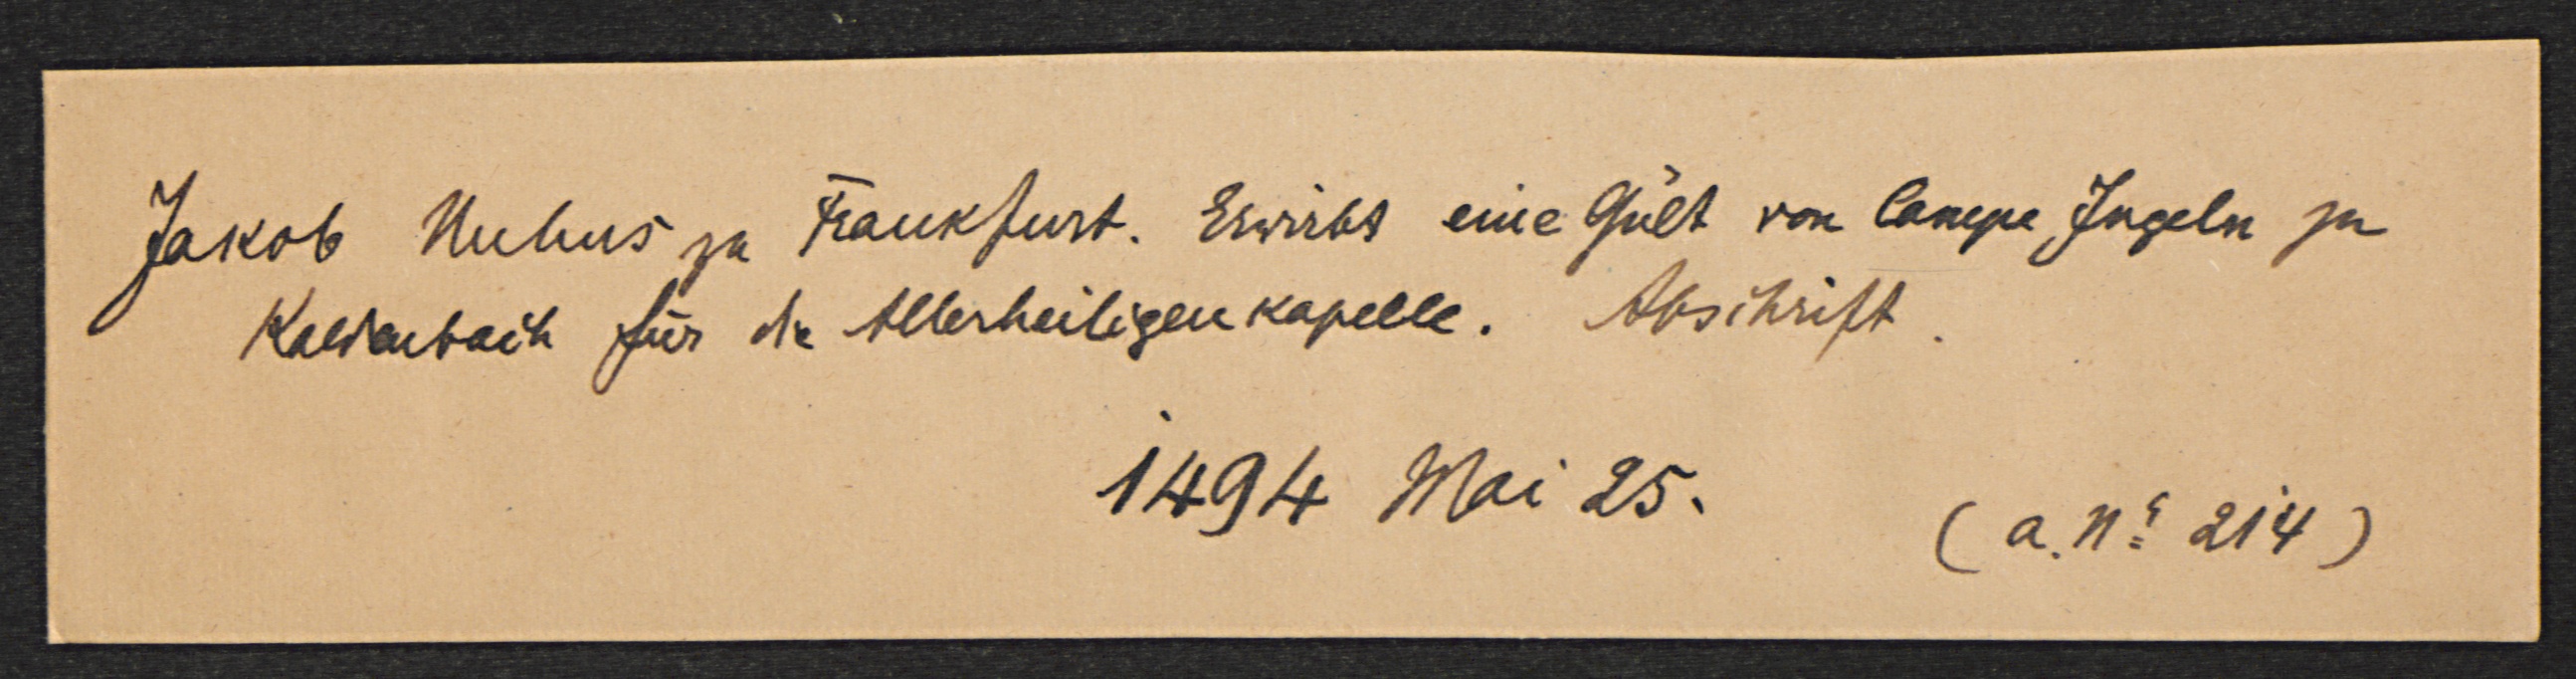 Jakob Nuhus zu Frankfurt. Erwirbt eine Gült von Campe Jngeln zu
Kaldenbach für die Allerheiligenkapelle. Abschrift.
1494 Mai 25.
(a. Nr. 214)